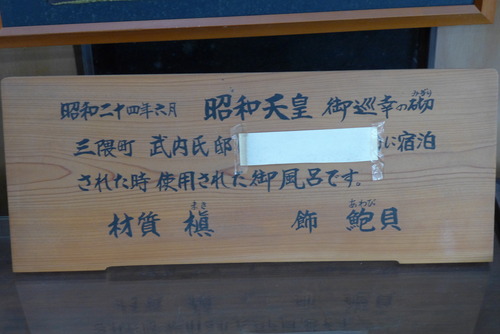 昭和二十四年六月 昭和天皇 御巡幸の砌
みぎり
三隈町 武内氏邸 に宿泊
された時使用された御風呂です。
まき あわび
材質 槇 飾 鮑貝